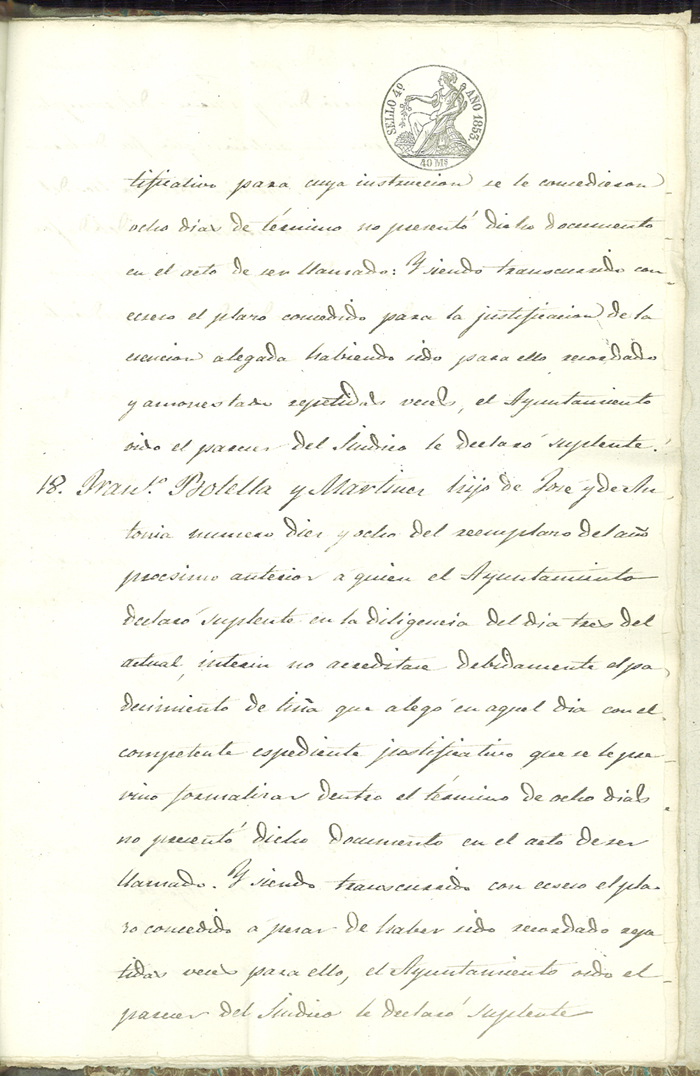 SELLO 4º AÑO 1853.
40 Ms
tificativo para cuya instruccion se le concedieron
ocho dias de término no presentó dicho documento
en el acto de ser llamado: Y siendo transcurrido con
eceso el plazo concedido para la justificacion de la
esencion alegada habiendo sido para ello recordado
y amonestado repetidas veces, el Ayuntamiento
oido el parecer del Sindico le declaró suplente.
18. Fran.co Botella y Martinez hijo de José y de An
tonia numero diez y ocho del reemplazo del año
procsimo anterior a quien el Ayuntamiento
declaró suplente en la diligencia del dia tres del
actual, interin no acreditase debidamente el pa
decimiento de tiña que alegó en aquel dia con el
competente espediente justificativo que se le pre
vino formalizar dentro el término de ocho dias
no presentó dicho documento en el acto de ser
llamado. Y siendo transcurrido con eceso el pla
zo concedido a pesar de haber sido recordado repe
tidas veces para ello, el Ayuntamiento oido el
parecer del Sindico le declaró suplente